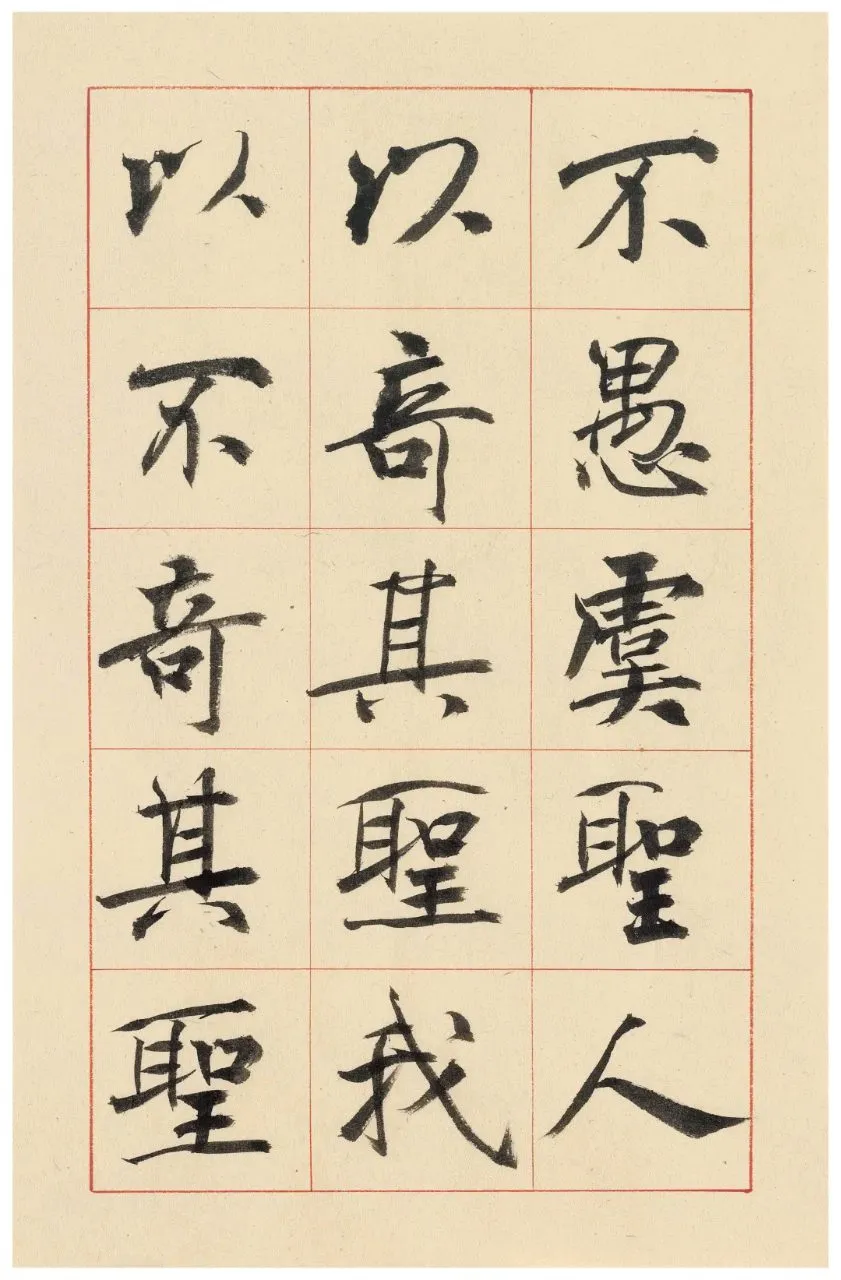 不愚虞聖人
以奇其聖我
以不奇其聖